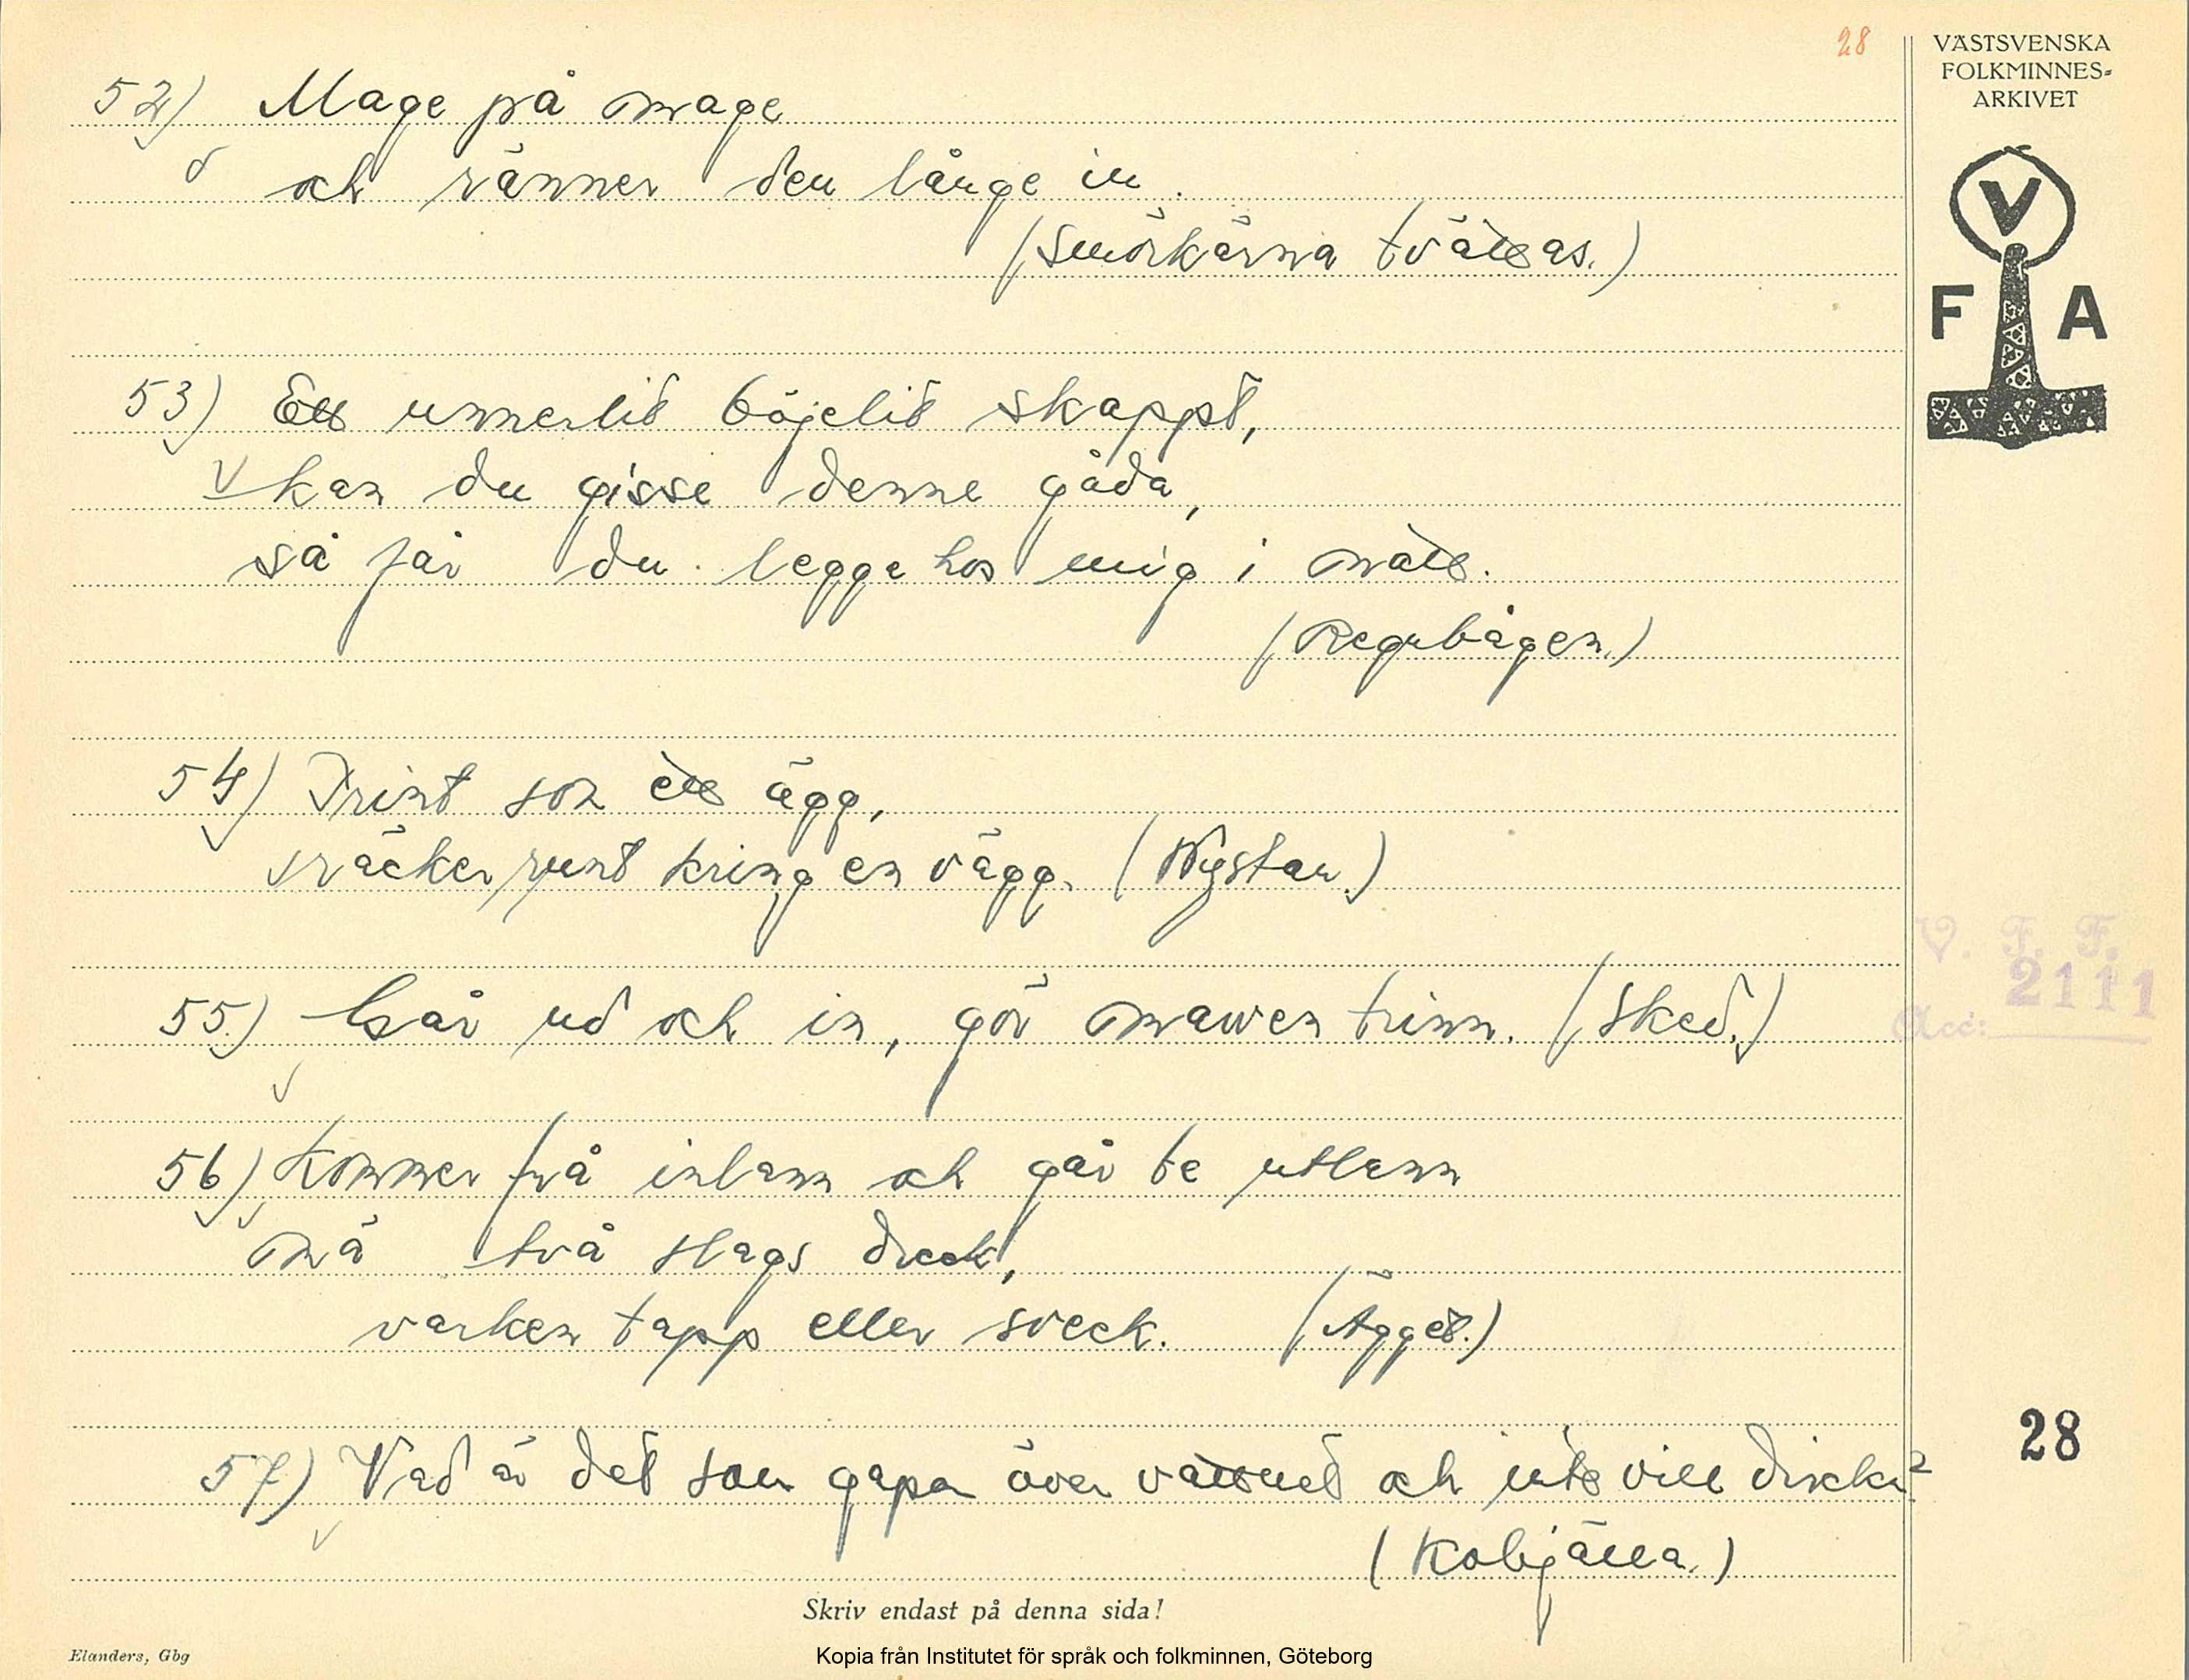 28
VÄSTSVENSKA
FOLKMINNES-
ARKIVET
V
F A
52) Mage på mage
och ränner den långe in.
(Smörkärna tvättas.)
53) Ett unnerlit böjelit skappt,
kan du gisse denne gåda,
så får du legge hos mig i natt.
(Regnbågen.)
54) Trint som ett ägg,
räcker runt kring en vägg. (Nystan.)
55.) Går ud och in, gör mawen trinn. (Sked.)
56) Kommer frå inlann och går te utlann
mä två slags dreck,
varken tapp eller sveck. (Ägget.)
57) Vad är det som gapa över vattnet och inte vill dricka?
(Kobjälla.)
V. F. F.
2111
Acc:
28
Skriv endast på denna sida!
Elanders, Gbg
Kopia från Institutet för språk och folkminnen, Göteborg